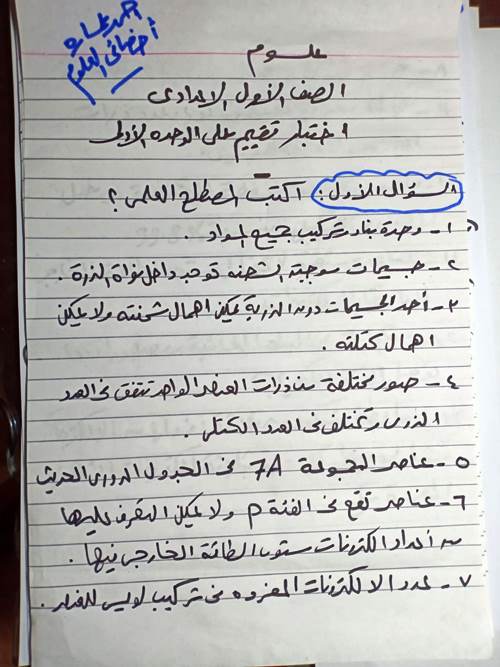 أخصائى العلوم
علوم
الصف الأول الإعدادى
اختبار تقييم على الوحدة الأولى
السؤال الأول: اكتب المصطلح العلمى؟
١- وحدة بناء وتركيب جميع المواد.
٢- جسيمات موجبة الشحنه توجد داخل نواة الذرة.
٣- أحد الجسيمات دون الذرية يمكن اهمال شحنته ولا يمكن
اهمال كتلته.
٤- صور مختلفة من ذرات العنصر الواحد تتفق فى العدد
الذرى وتختلف فى العدد الكتلى.
٥- عناصر المجموعة 7A فى الجدول الدورى الحديث
٦- عناصر تقع فى الفئة p ولا يمكن التعرف عليها
من أعداد الكترونات مستوى الطاقة الخارجى فيها.
٧- عدد الالكترونات المفرده فى تركيب لويس للعنصر.